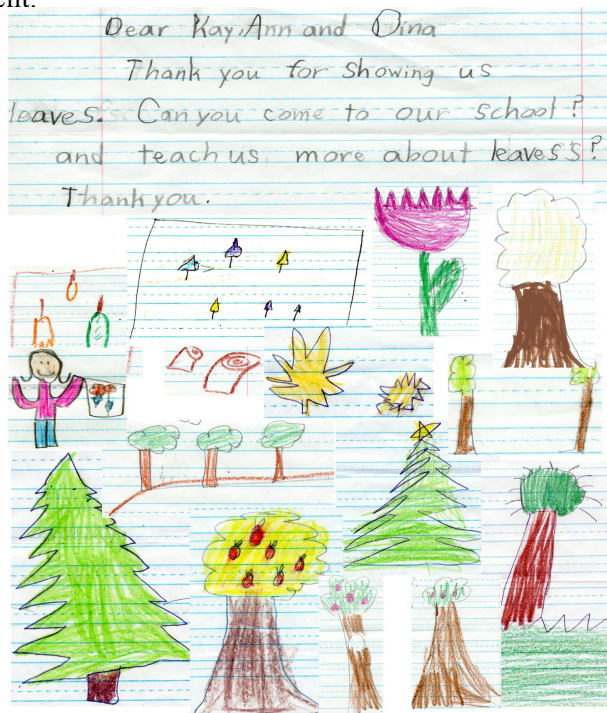 ent.
Dear Kay, Ann and Dina
Thank you for showing us
leaves. Can you come to our school?
and teach us more about leaves's?
Thank you.